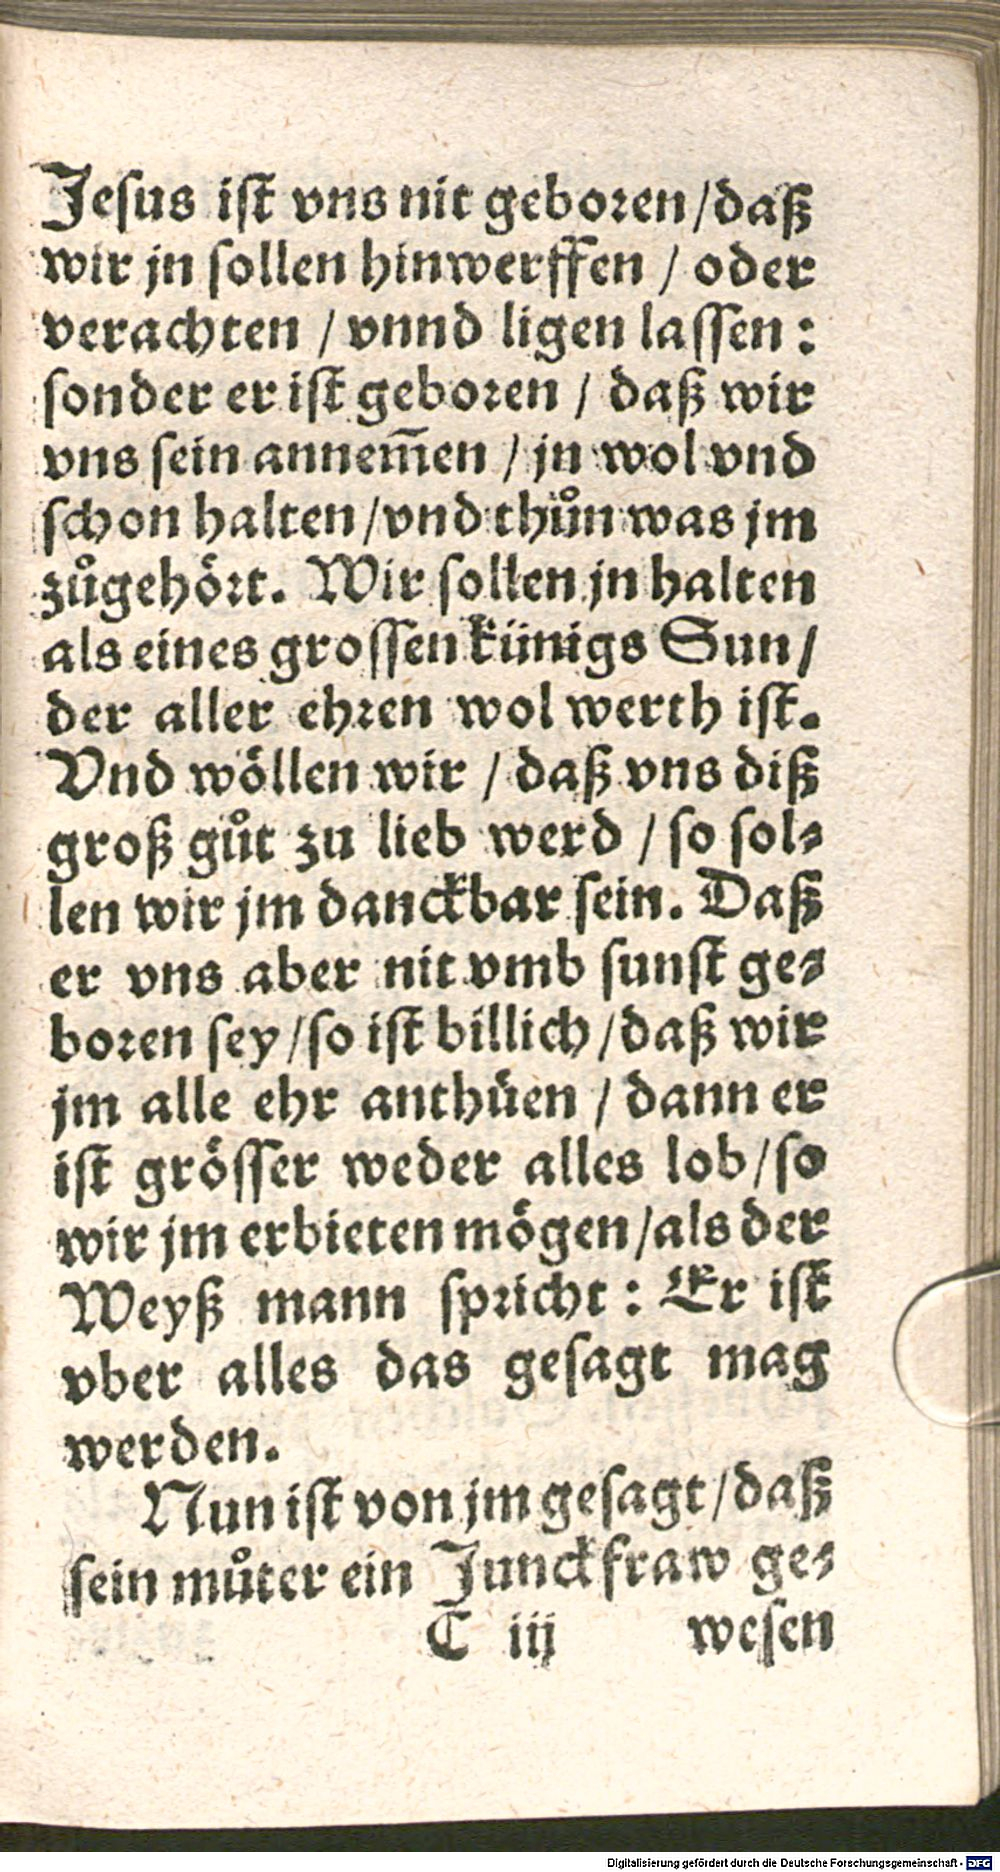 Jesus ist vns nit geboren/daß
wir jn sollen hinwerffen / oder
verachten / vnnd ligen lassen:
sonder er ist geboren / daß wir
vns sein annem̃en / jn wol vnd
schon halten/vnd thuͦn was jm
zuͦgehoͤrt. Wir sollen jn halten
als eines grossen künigs Sun/
der aller ehren wol werth ist.
Vnd woͤllen wir / daß vns diß
groß guͦt zu lieb werd / so sol⸗
len wir jm danckbar sein. Daß
er vns aber nit vmb sunst ge⸗
boren sey/so ist billich/daß wir
jm alle ehr anthüen / dann er
ist groͤsser weder alles lob/so
wir jm erbieten moͤgen/als der
Weyß mann spricht: Er ist
vber alles das gesagt mag
werden.
Nun ist von jm gesagt/daß
sein muͦter ein Junckfraw ge⸗
C iij wesen
Digitalisierung gefördert durch die Deutsche Forschungsgemeinschaft - DFG